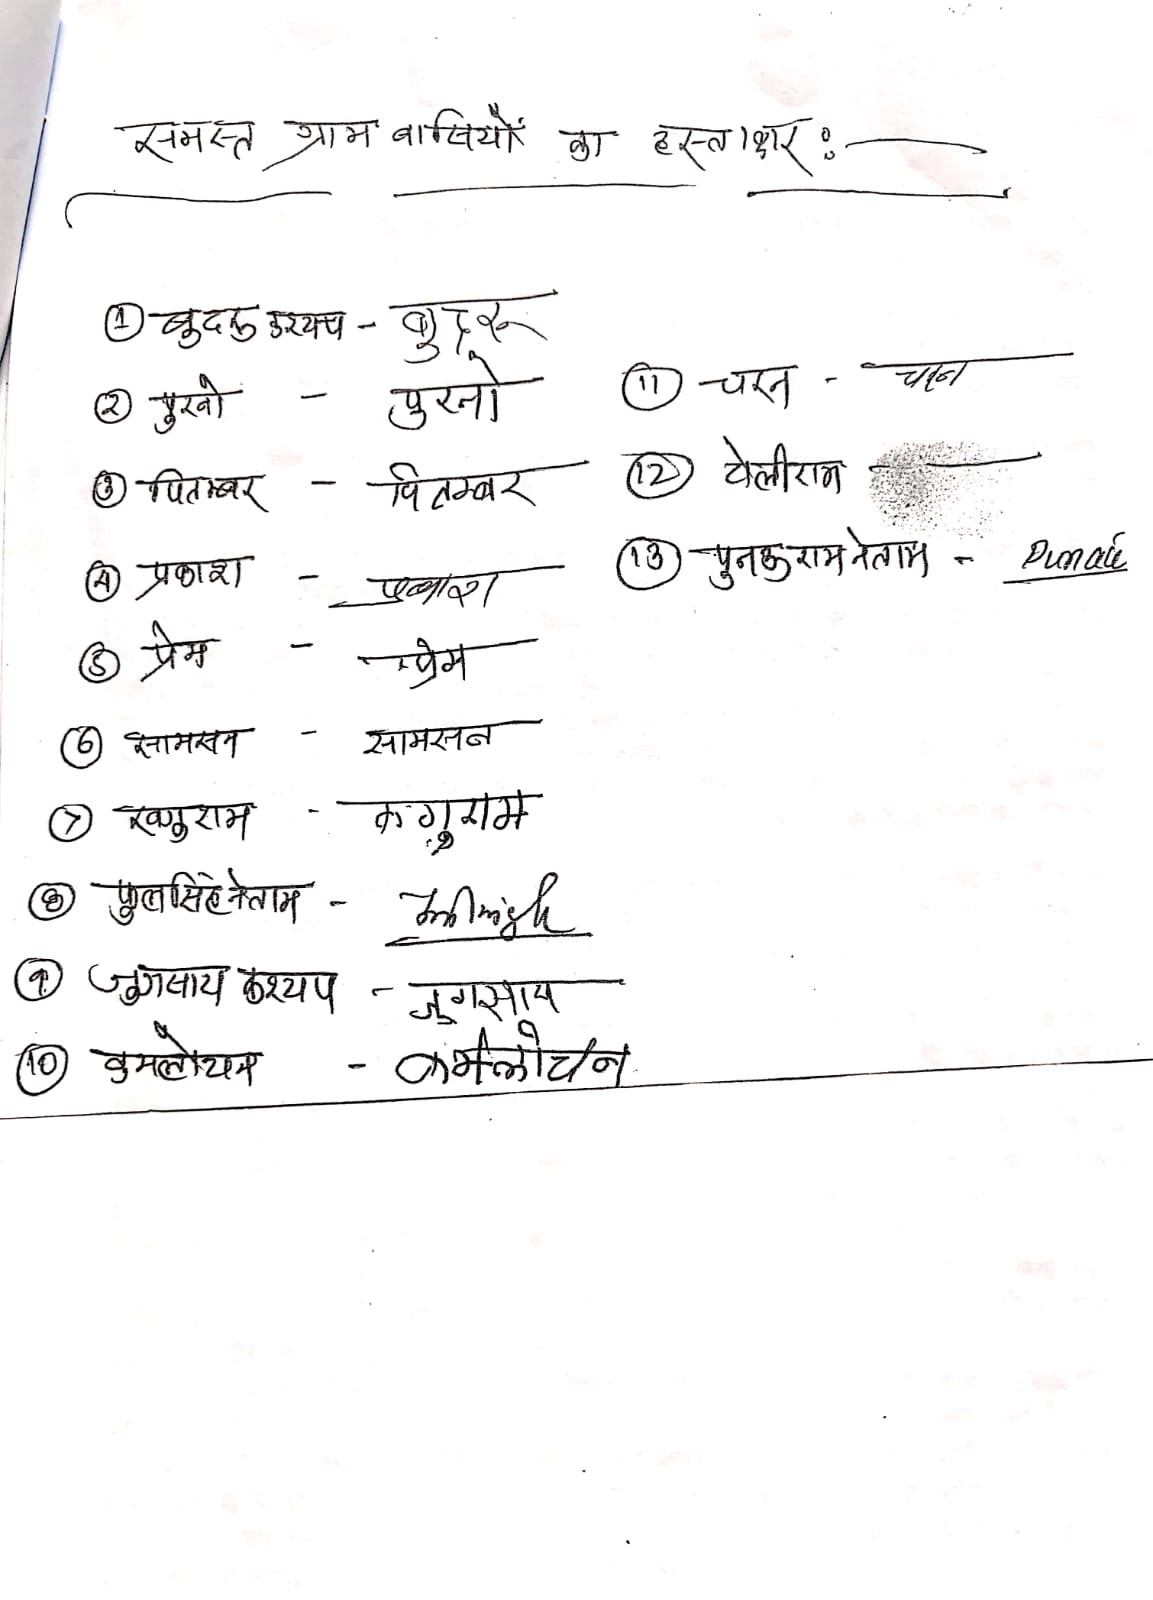 समस्त ग्राम वासियों का हस्ताक्षर :
① बुदरु कश्यप - बुदरू
② पुरनो - पुरनो
③ पितम्बर - पितम्बर
④ प्रकाश - प्रकाश
⑤ प्रेम - प्रेम
⑥ सामसन - सामसन
⑦ गुराम - कंगुराम
⑧ फुलसिंह नेताम -
⑨ जुगसाय कश्यप - जुगसाय
⑩ कमलोचन - कमलोचन
⑪ चरन - चरन
⑫ थेलीराम
⑬ पुनऊराम नेताम -